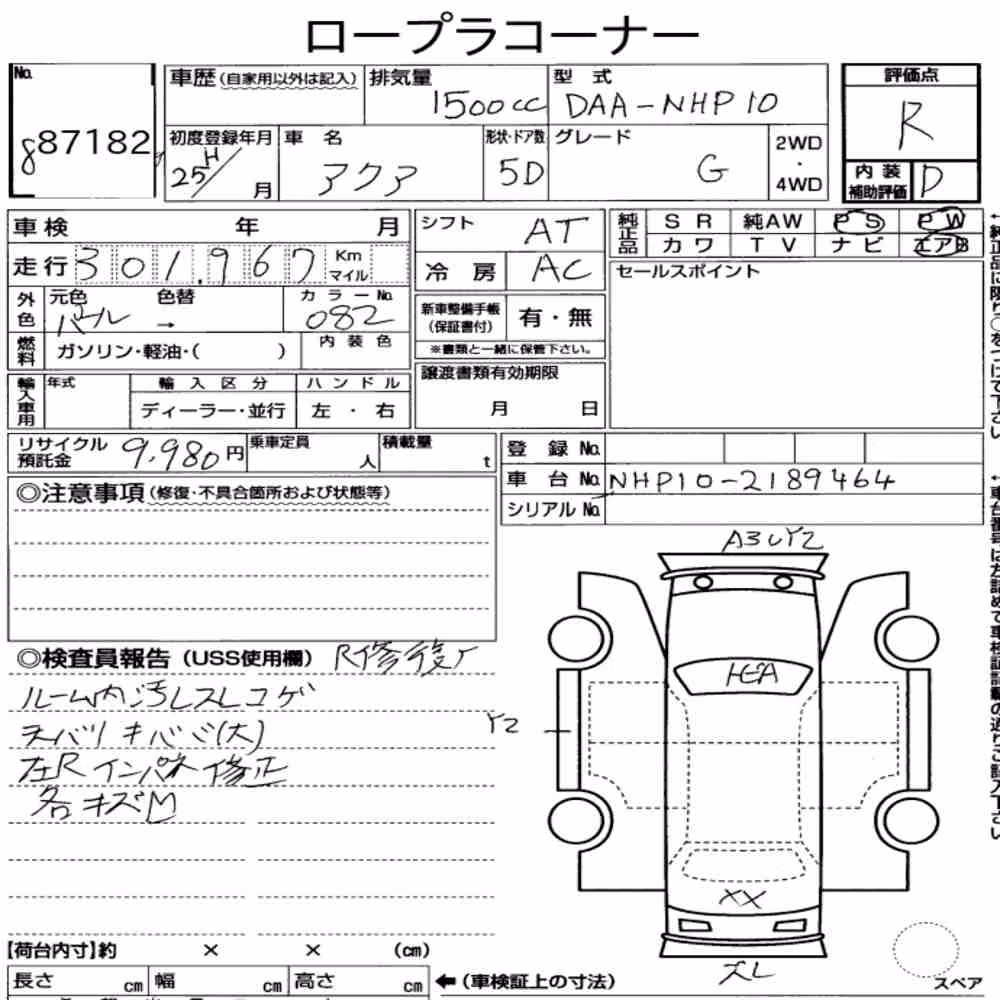 ロープラコーナー
No. 87182
車歴(自家用以外は記入) 排気量 1500cc 型式 DAA-NHP10
評価点 R
初度登録年月 H25/ 月 車名 アクア 形状・ドア数 5D グレード G 2WD・4WD
内装補助評価 D
車検 年 月
走行 301,967 Km マイル
外色 元色 パール 色替 → カラーNo. 082
燃料 ガソリン・軽油・( ) 内装色
輸入車用 年式 輸入区分 ハンドル
ディーラー・並行 左・右
シフト AT
冷房 AC
新車整備手帳(保証書付) 有・無
※書類と一緒に保管下さい。
譲渡書類有効期限
月 日
純正品 SR 純AW PS PW
カワ TV ナビ エアB
セールスポイント
←純正品に限り○をつけて下さい
リサイクル預託金 9,980円 乗車定員 人 積載量 t
登録No.
車台No. NHP10-2189464
シリアルNo.
◎注意事項(修復・不具合箇所および状態等)
◎検査員報告(USS使用欄) R修復ア
ルーム内汚レスレコゲ
天バリキバミ(大)
左Rインパネ修正
各キズM
A3 U Y2
Y2
XX
ズレ
スペア
【荷台内寸】約 × × (cm)
長さ cm 幅 cm 高さ cm ←(車検証上の寸法)